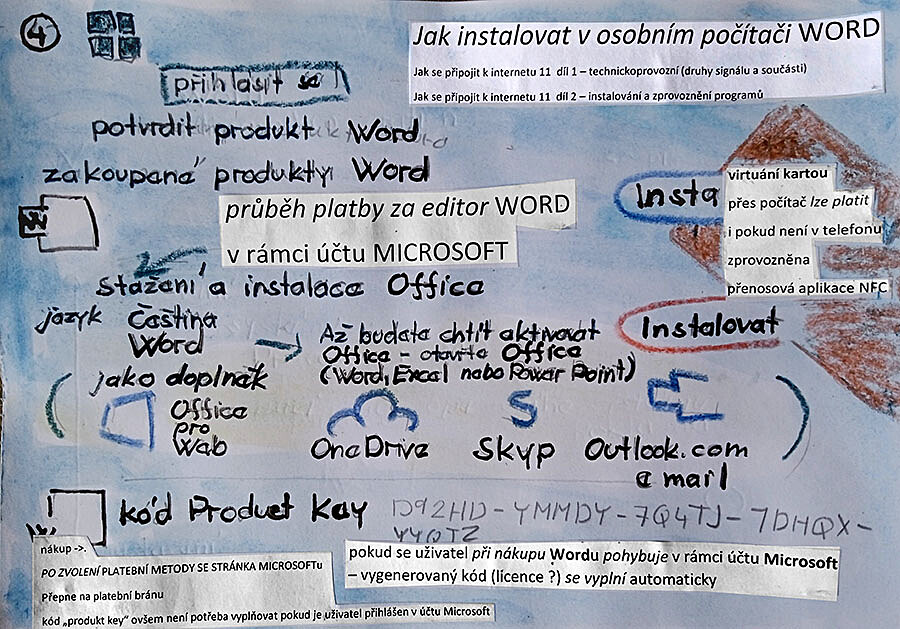 4
Jak instalovat v osobním počítači WORD
Jak se připojit k internetu 11 díl 1 – technickoprovozní (druhy signálu a součásti)
Jak se připojit k internetu 11 díl 2 – instalování a zprovoznění programů
přihlásit se
potvrdit produkt Word
zakoupené produkty Word
Insta
virtuání kartou
přes počítač lze platit
i pokud není v telefonu
zprovozněna
přenosová aplikace NFC
W
průběh platby za editor WORD
v rámci účtu MICROSOFT
stažení a instalace Office
jazyk Čeština
Word
Až budete chtít aktivovat
Office – otevřte Office
(Word, Excel nebo Power Point)
Instalovat
jako doplněk
Office
pro
Web
OneDrive
S
Skyp
Outlook.com
e mail
kód Product Key D92HD-YMMDY-7Q4TJ-7DHQX-
YYQTZ
nákup ->.
PO ZVOLENÍ PLATEBNÍ METODY SE STRÁNKA MICROSOFTu
Přepne na platební bránu
kód „produkt key“ ovšem není potřeba vyplňovat pokud je uživatel přihlášen v účtu Microsoft
pokud se uživatel při nákupu Wordu pohybuje v rámci účtu Microsoft
– vygenerovaný kód (lícence ?) se vyplní automaticky